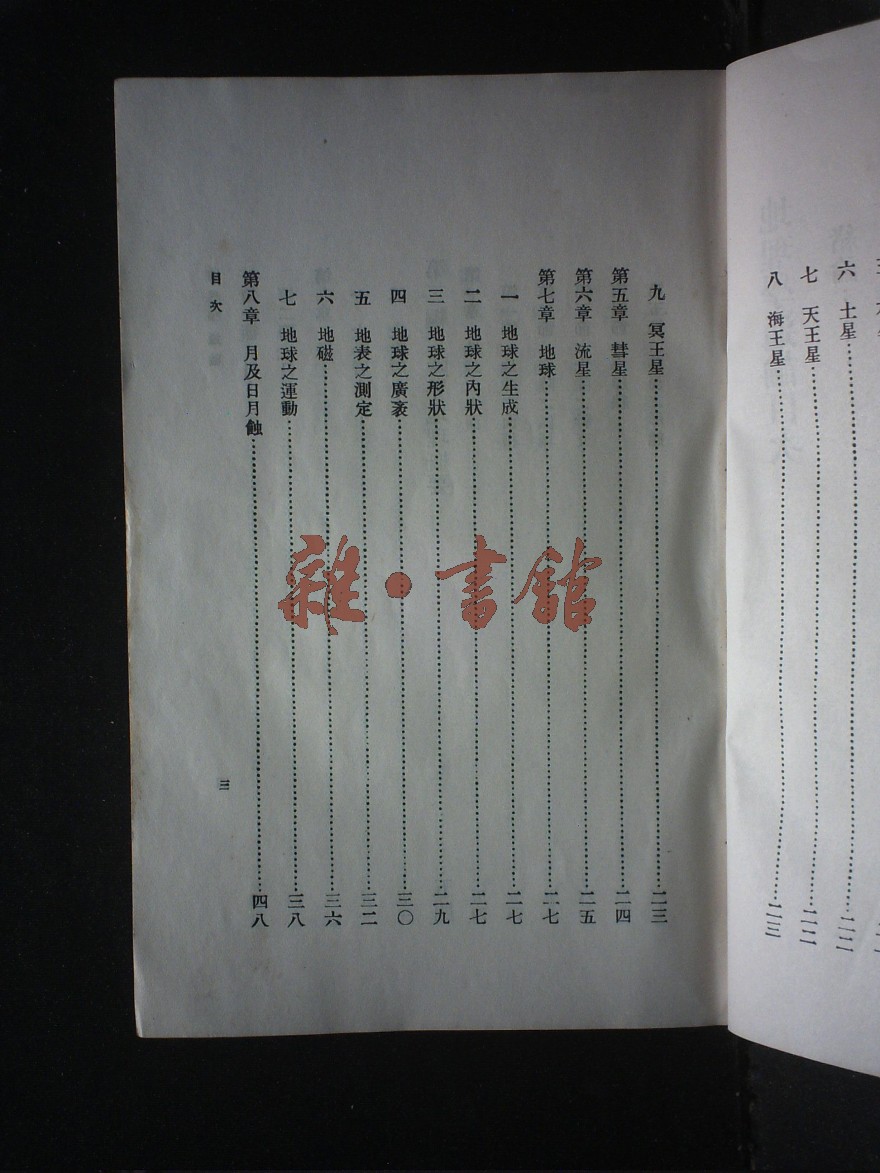 六　土星……二二
七　天王星……二二
八　海王星……二三
九　冥王星……二三
第五章　彗星……二四
第六章　流星……二五
第七章　地球……二七
一　地球之生成……二七
二　地球之內狀……二七
三　地球之形狀……二九
四　地球之廣袤……三〇
五　地表之測定……三二
六　地磁……三六
七　地球之運動……三八
第八章　月及日月蝕……四八
目次
三
雜·書館